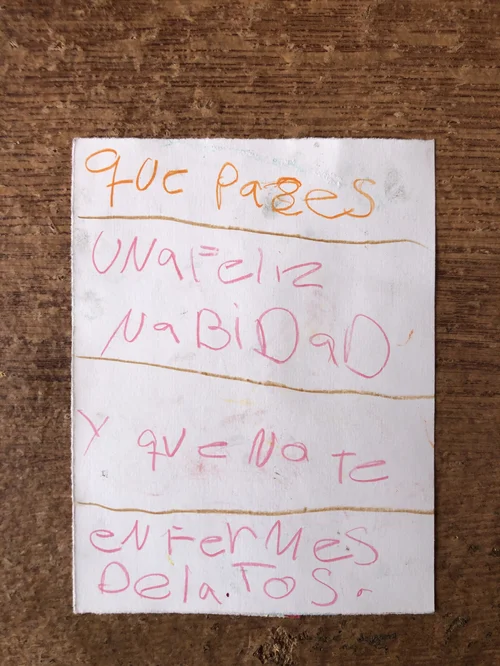 que pases
UNa Feliz
NaBiDaD
Y que No te
eNFerMes
Dela.Tos.